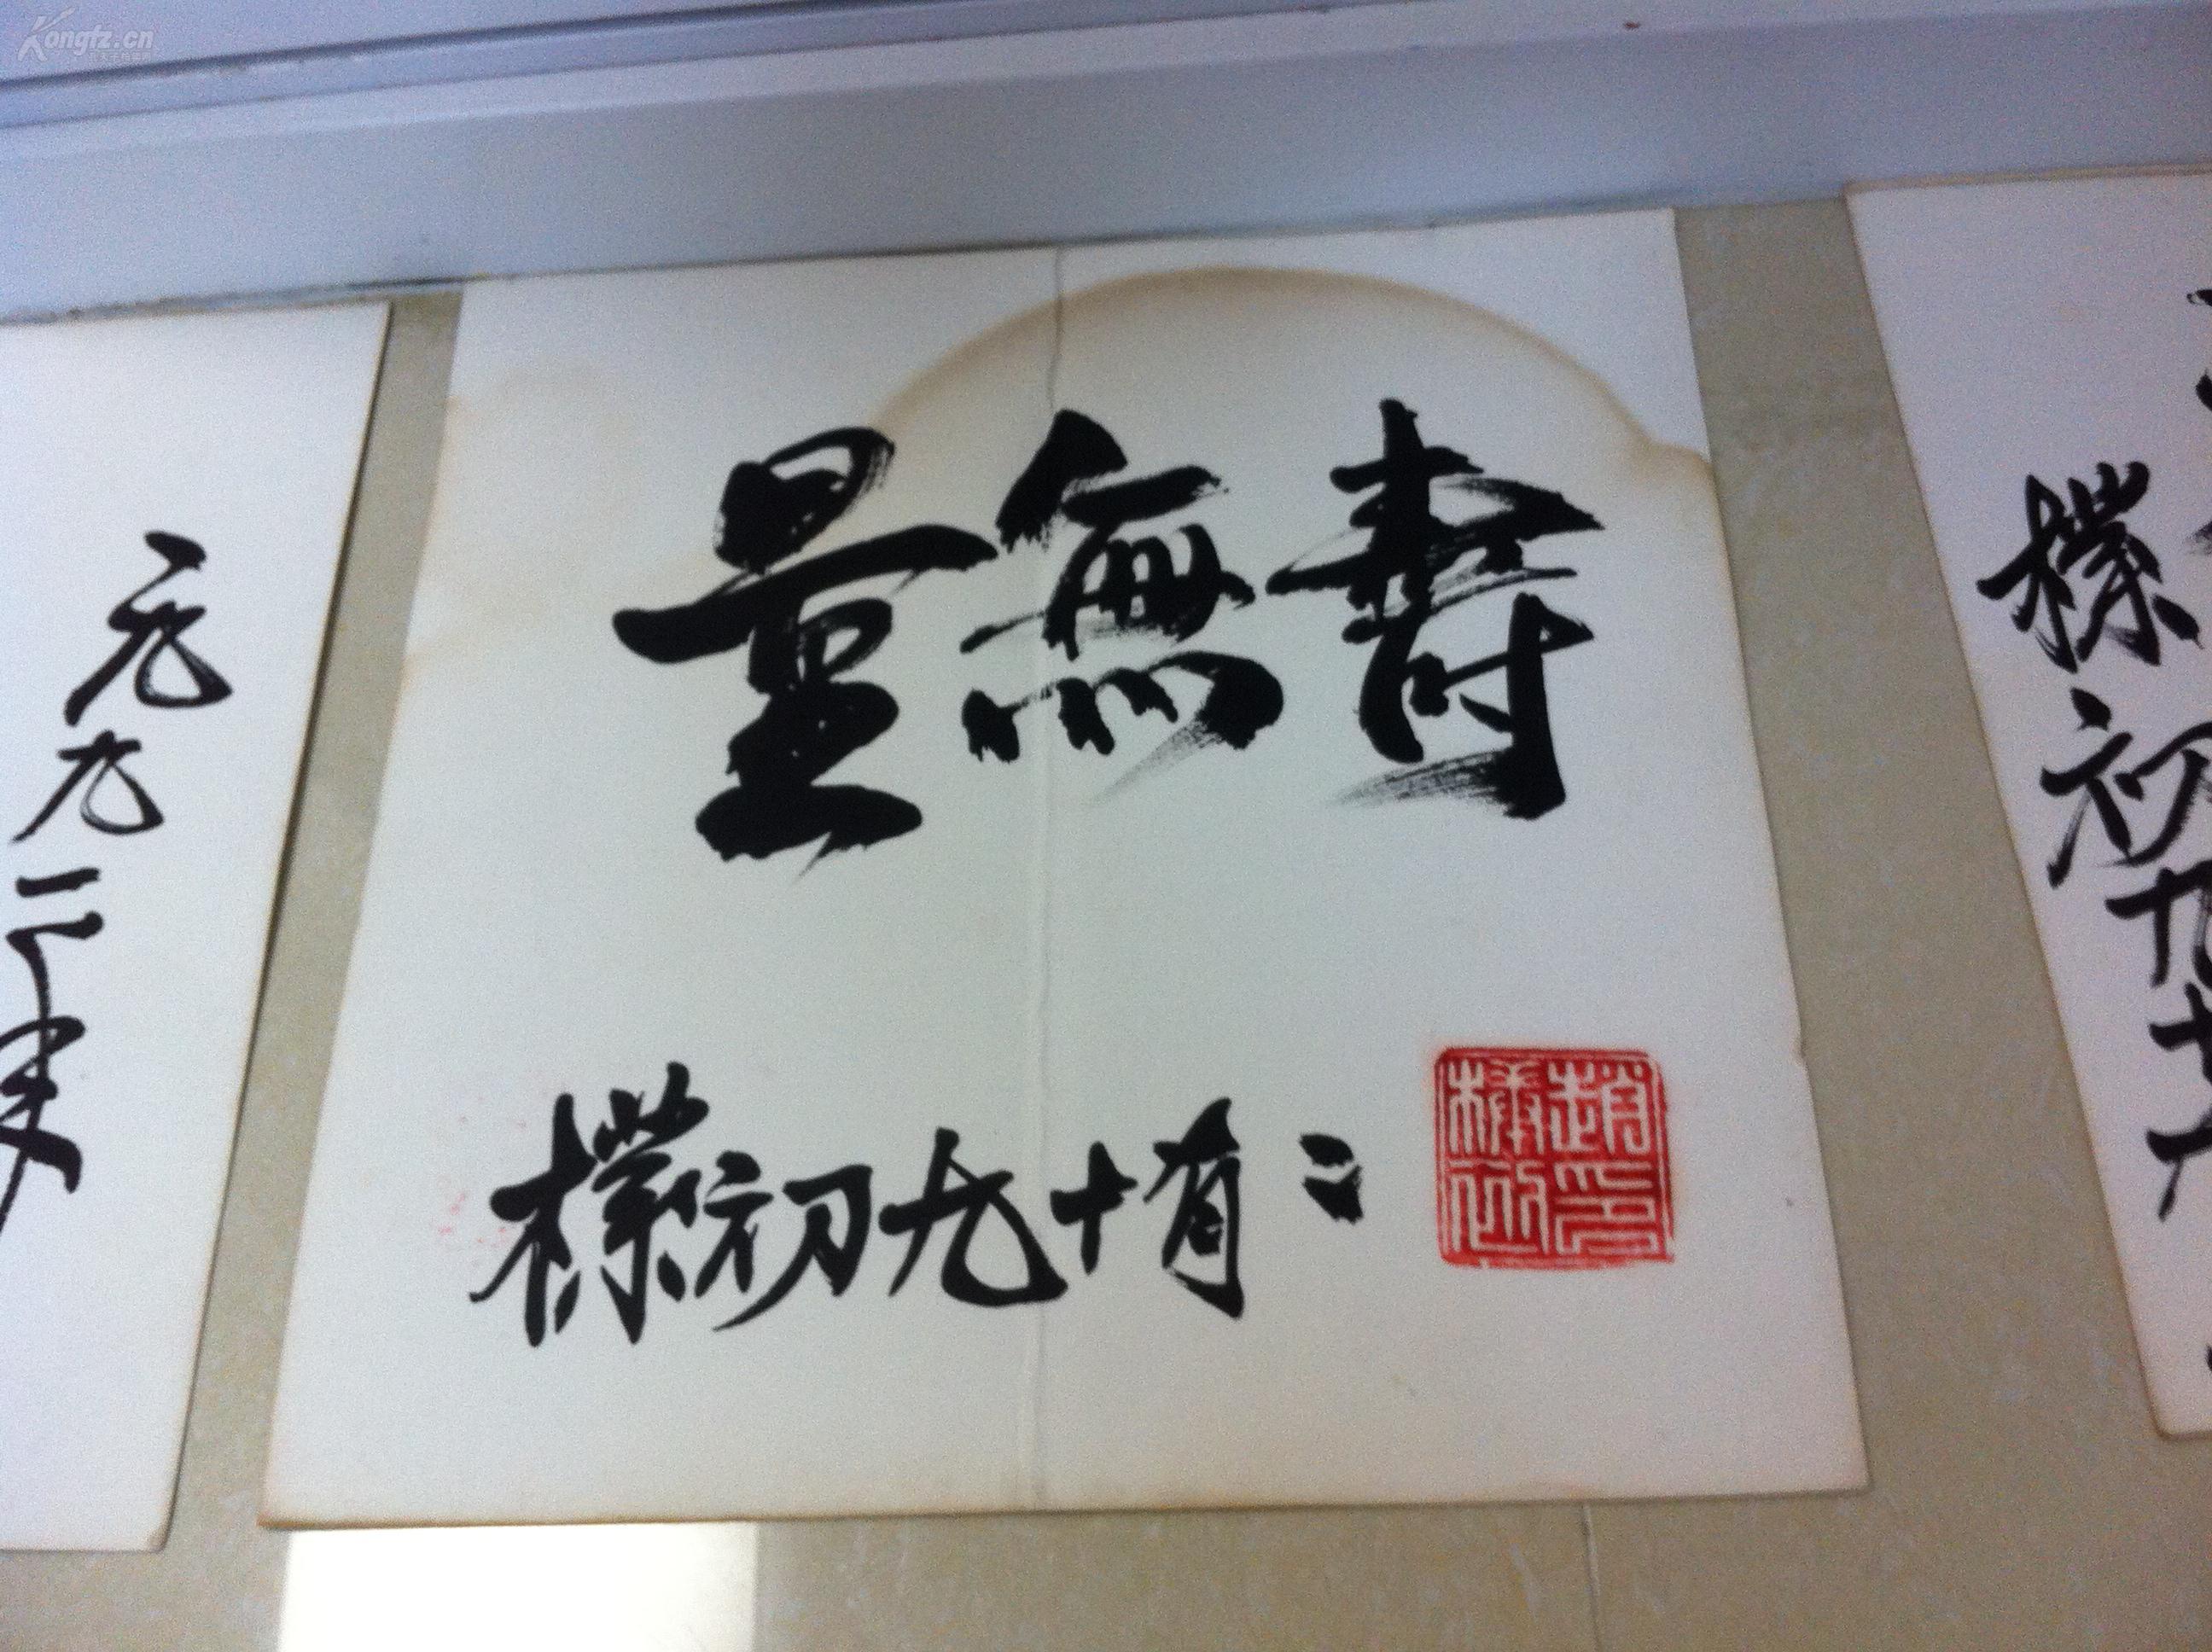 Kongfz.cn
壽無量
樸初九十有二
趙樸初印
元九九二年
樸初九十